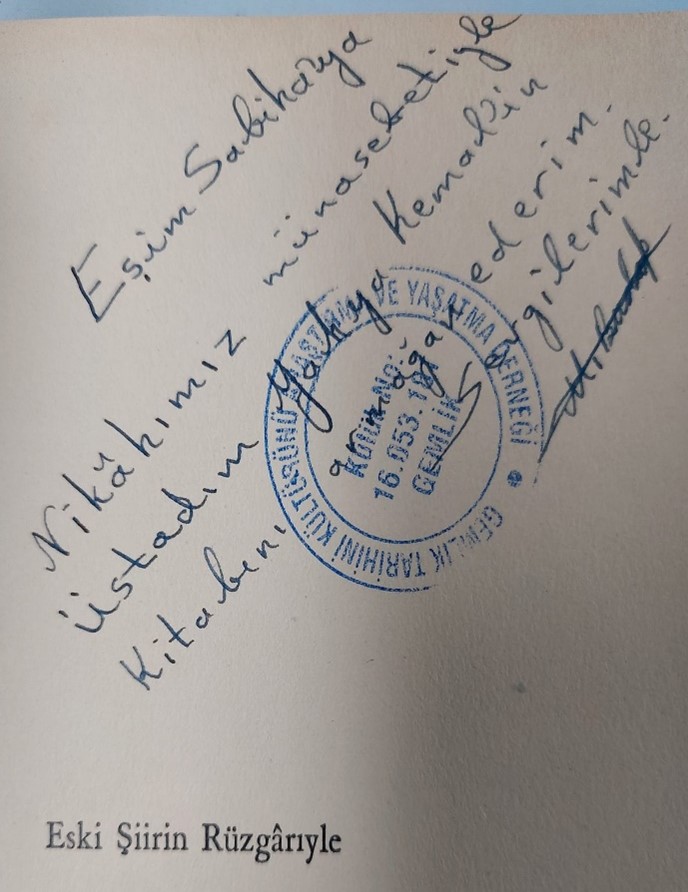 Eşim Sabiha'ya
Nikâhımız münasebetiyle
üstadım Yahya Kemal'in
Kitabını armağan ederim.
Sevgilerimle.
GEMLİK TARİHİNİ KÜLTÜRÜNÜ ARAŞTIRMA VE YAŞATMA DERNEĞİ
Kütük No:
16.053.
GEMLİK
Eski Şiirin Rüzgârıyle